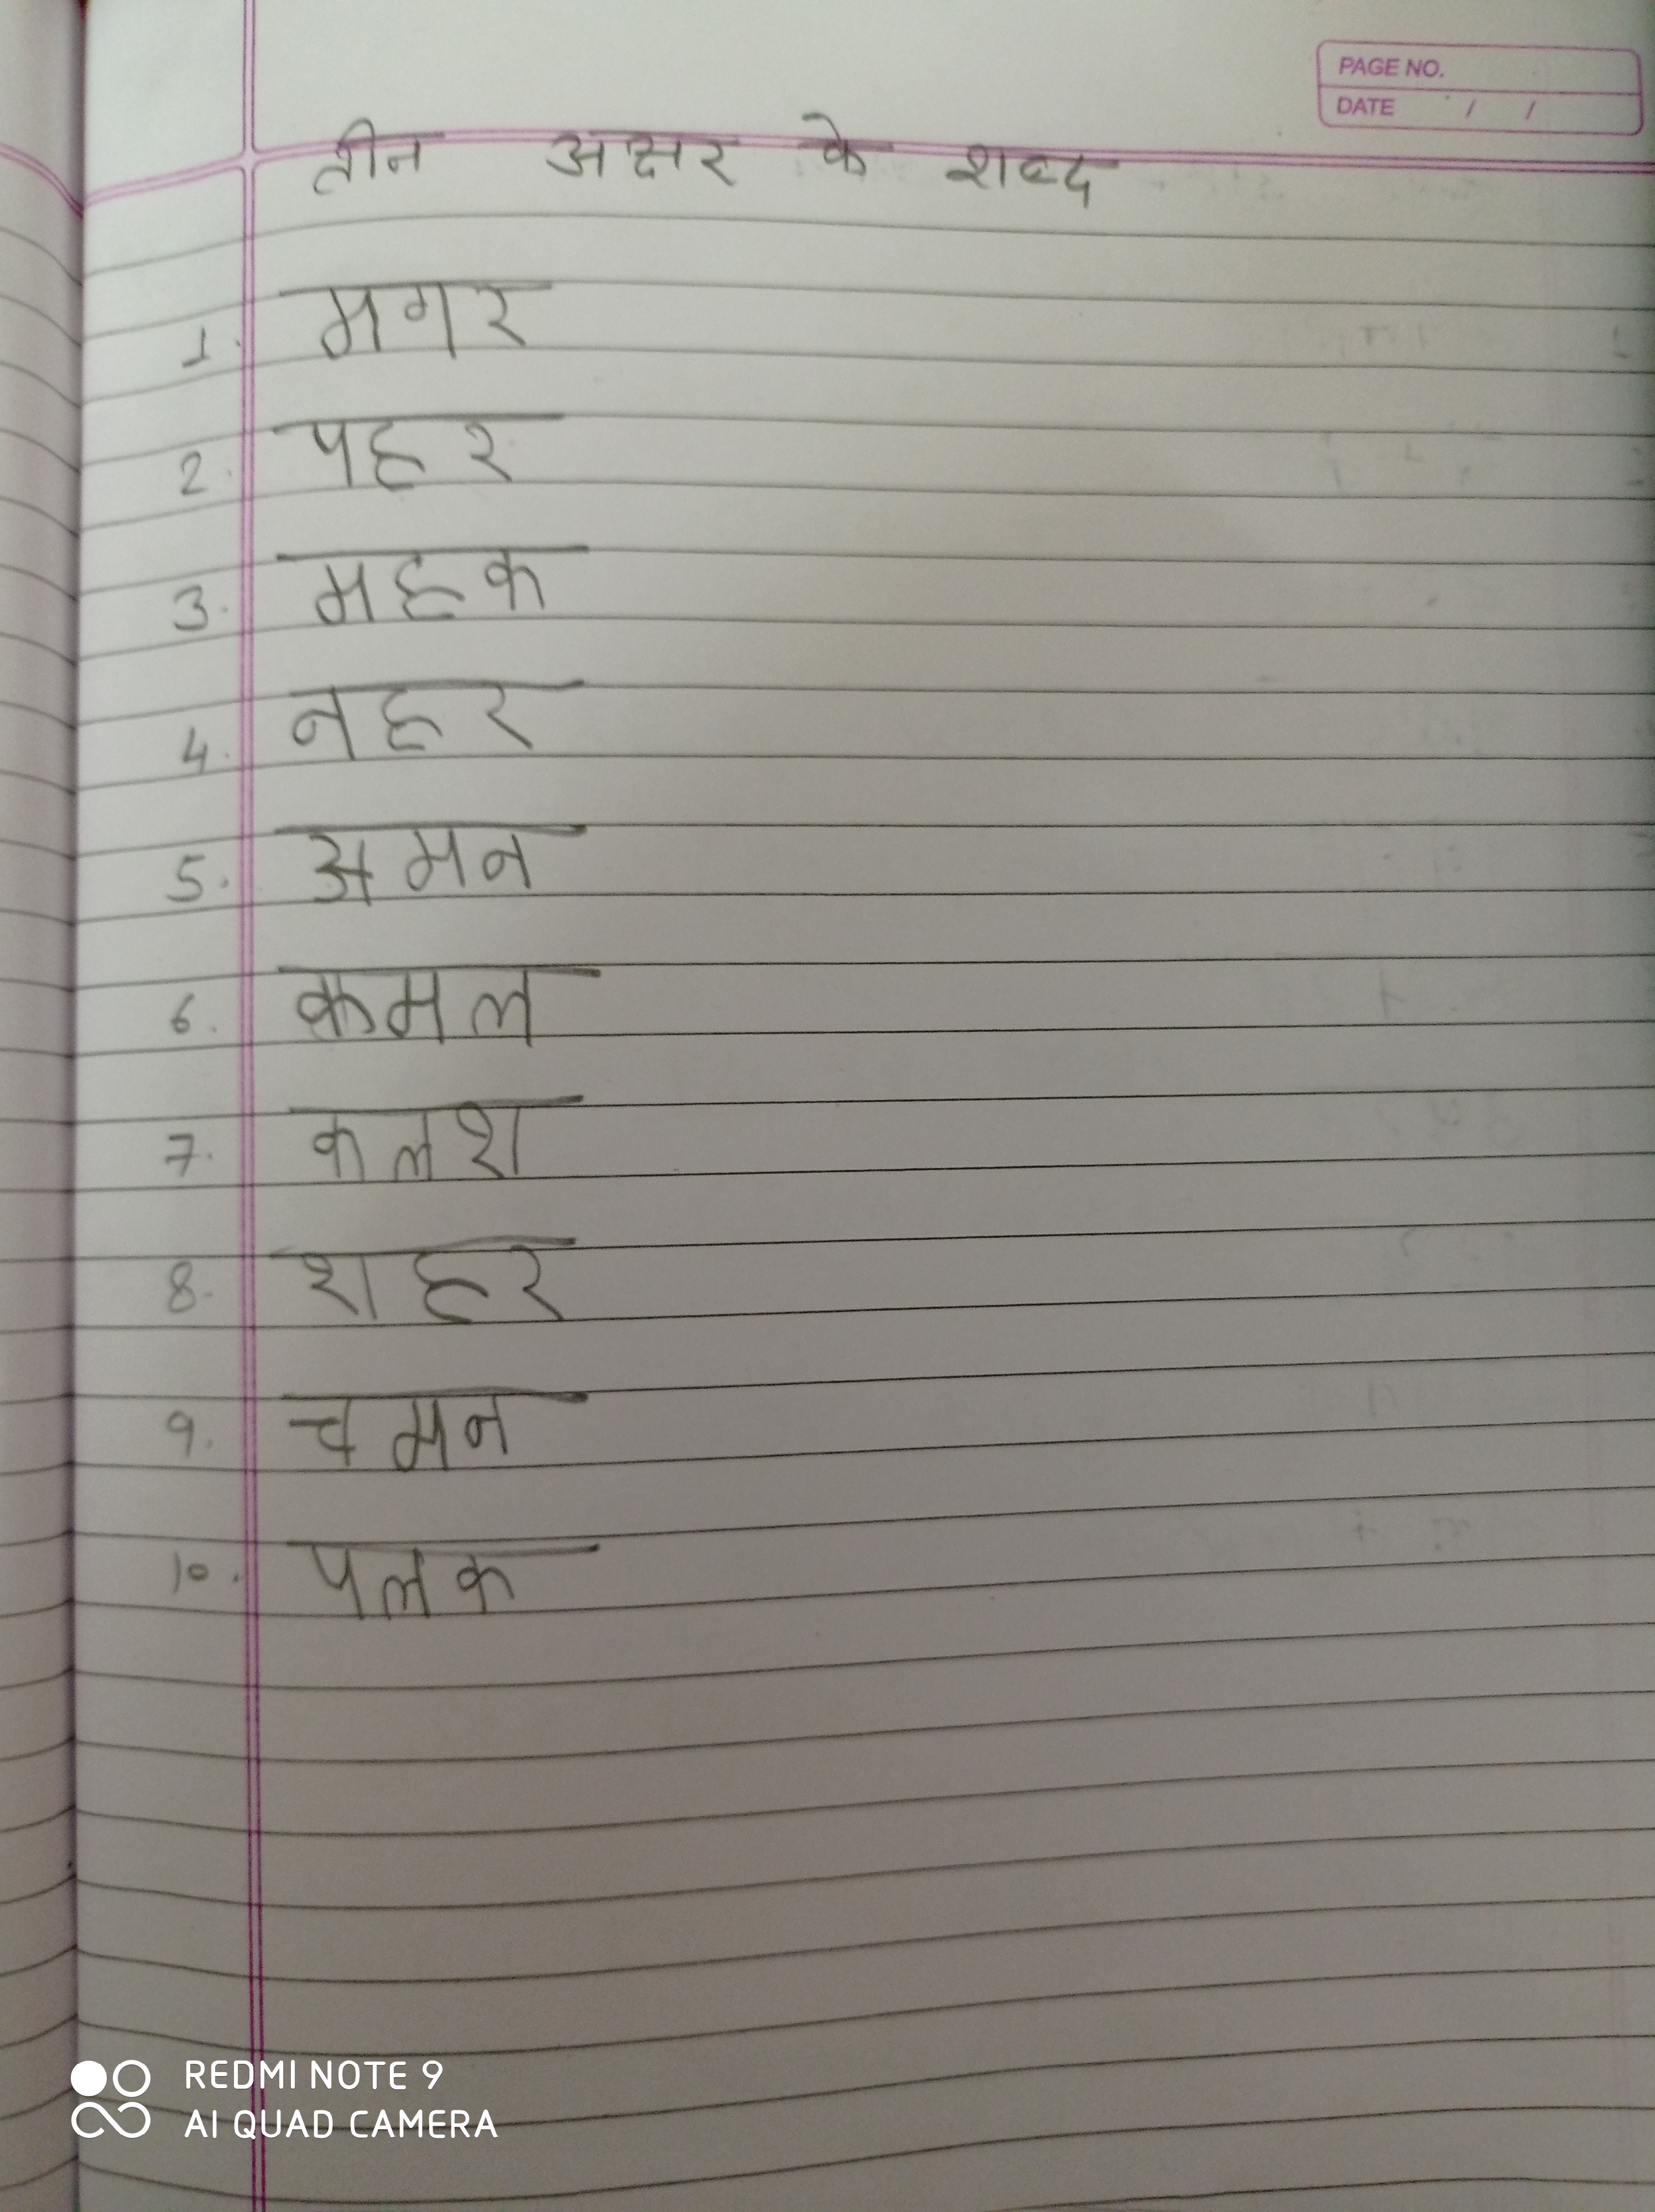 PAGE NO.
DATE / /
तीन अक्षर के शब्द
1. मगर
2. पहर
3. महक
4. नहर
5. अमन
6. कमल
7. कलश
8. शहर
9. चमन
10. पलक
REDMI NOTE 9
AI QUAD CAMERA